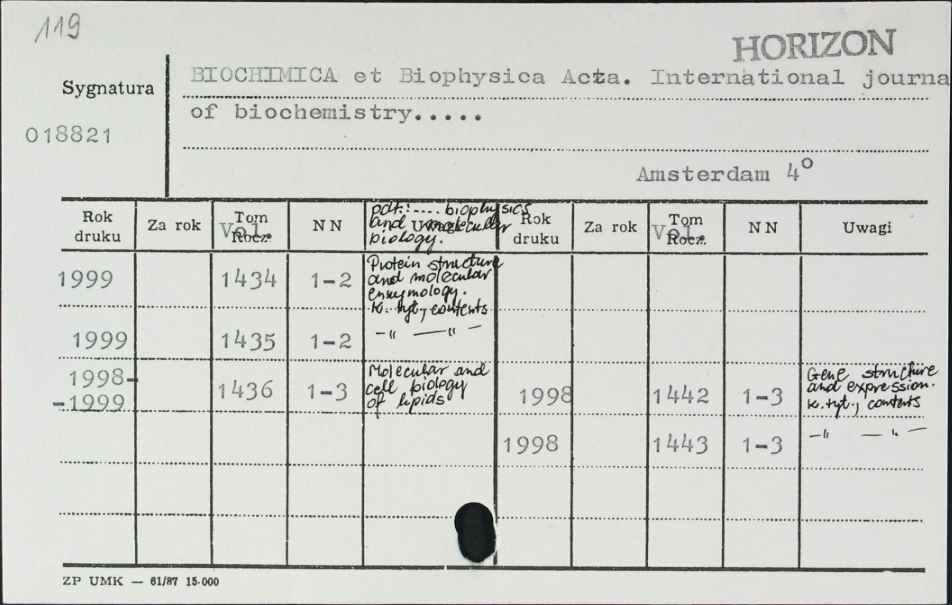 119
HORIZON
Sygnatura
BIOCHIMICA et Biophysica Acta. International journa
018821
of biochemistry.....
Amsterdam 4°
Rok druku Za rok Tom Rocz. Vol. NN Uwagi Rok druku Za rok Tom Rocz. Vol. NN Uwagi
pdt.: .... biophysics
and molecular
biology.
1999 1434 1-2 Protein structure
and molecular
enzymology.
k. tyt., contents
1999 1435 1-2 -"- -"-
1998-
-1999 1436 1-3 Molecular and
cell biology
of lipids
1998 1442 1-3 Gene structure
and expression.
k. tyt., contents
1998 1443 1-3 -"- -"-
ZP UMK — 61/87 15-000